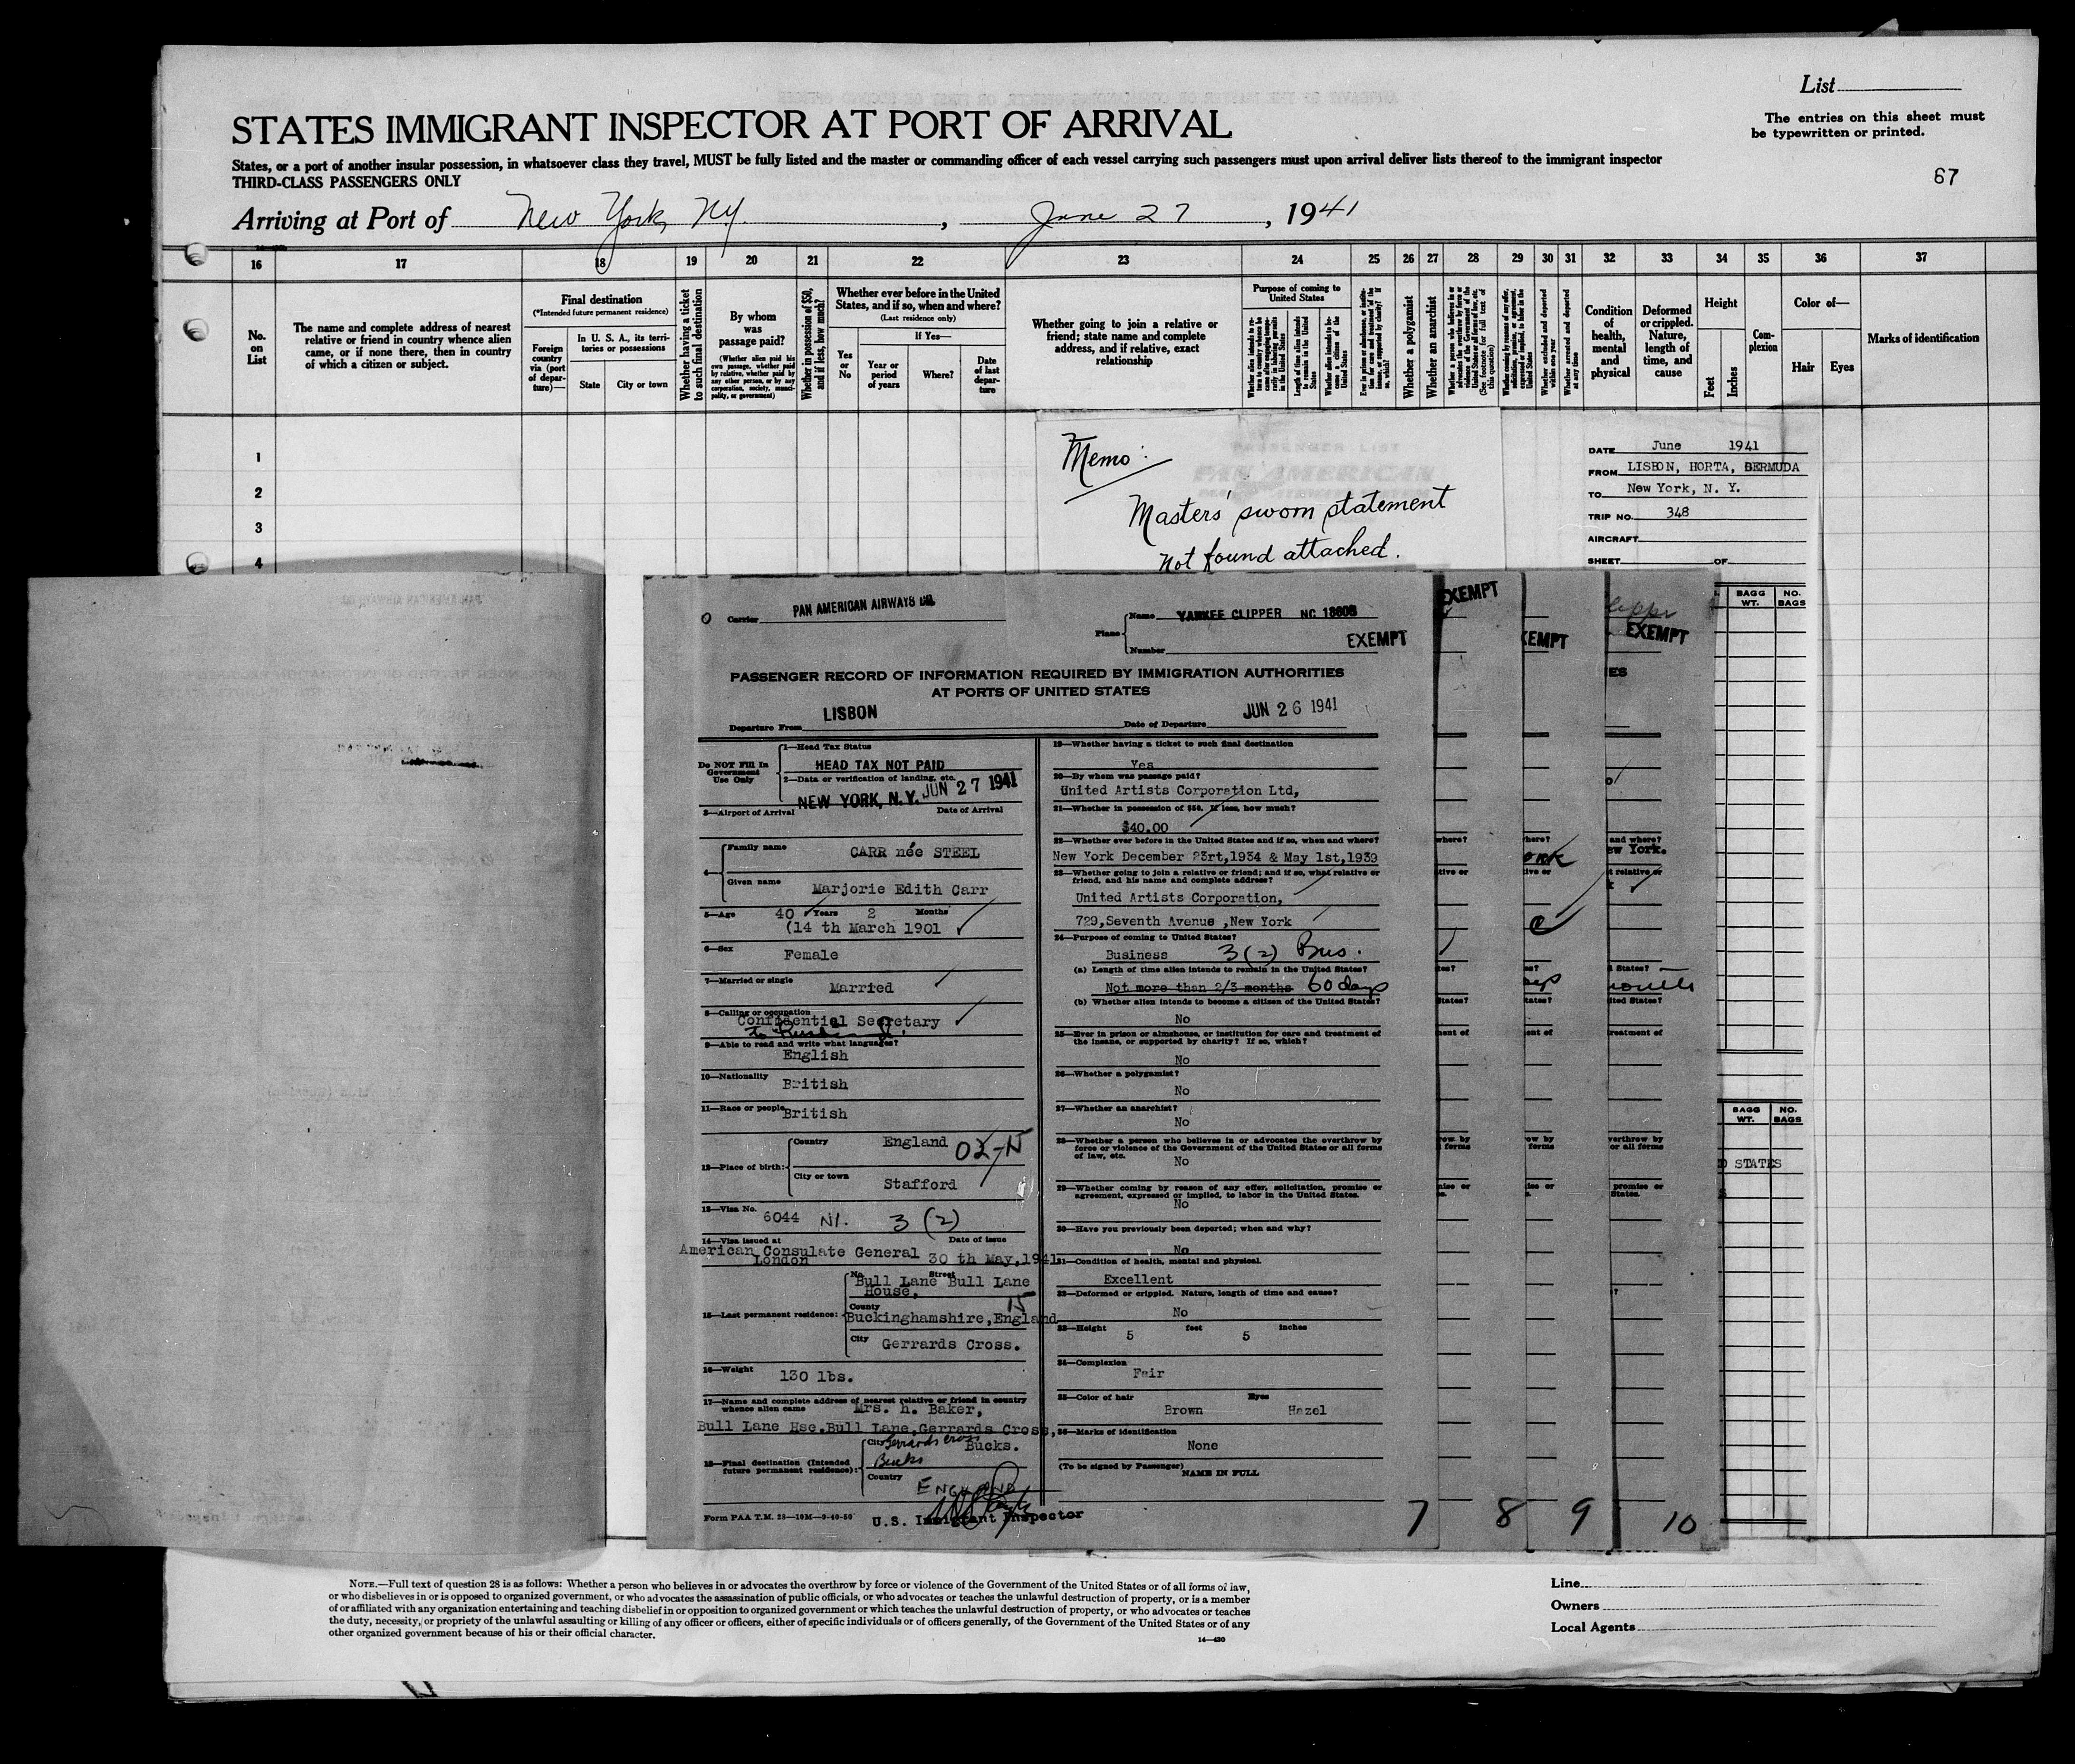 List
The entries on this sheet must
be typewritten or printed.
STATES IMMIGRANT INSPECTOR AT PORT OF ARRIVAL
States, or a port of another insular possession, in whatsoever class they travel, MUST be fully listed and the master or commanding officer of each vessel carrying such passengers must upon arrival deliver lists thereof to the immigrant inspector
THIRD-CLASS PASSENGERS ONLY
67
Arriving at Port of New York, NY. , June 27 , 1941
16 17 18 19 20 21 22 23 24 25 26 27 28 29 30 31 32 33 34 35 36 37
No.
on
List
The name and complete address of nearest
relative or friend in country whence alien
came, or if none there, then in country
of which a citizen or subject.
Final destination
(*Intended future permanent residence)
Foreign
country
via (port
of depar-
ture)—
In U. S. A., its terri-
tories or possessions
State
City or town
Whether having a ticket
to such final destination
By whom
was
passage paid?
(Whether alien paid his
own passage, whether paid
by relative, whether paid
by any other person, or by any
corporation, society, munici-
pality, or government)
Whether in possession of $50,
and if less, how much?
Whether ever before in the United
States, and if so, when and where?
(Last residence only)
Yes
or
No
If Yes—
Year or
period
of years
Where?
Date
of last
depar-
ture
Whether going to join a relative or
friend; state name and complete
address, and if relative, exact
relationship
Purpose of coming to
United States
Whether a polygamist
Whether an anarchist
Condition
of
health,
mental
and
physical
Deformed
or crippled.
Nature,
length of
time, and
cause
Height
Feet
Inches
Com-
plexion
Color of—
Hair
Eyes
Marks of identification
1
2
3
4
Memo:
Masters' sworn statement
not found attached.
DATE June 1941
FROM LISBON, HORTA, BERMUDA
TO New York, N. Y.
TRIP NO. 348
AIRCRAFT
SHEET OF
BAGG
WT.
NO.
BAGS
Carrier PAN AMERICAN AIRWAYS CO.
Plane
Name YANKEE CLIPPER NC 18603
Number
EXEMPT
EXEMPT
EXEMPT
EXEMPT
PASSENGER RECORD OF INFORMATION REQUIRED BY IMMIGRATION AUTHORITIES
AT PORTS OF UNITED STATES
Departure From LISBON
Date of Departure JUN 26 1941
Do NOT Fill In
Government
Use Only
1—Head Tax Status
HEAD TAX NOT PAID
2—Data or verification of landing, etc.
NEW YORK, N.Y. JUN 27 1941
3—Airport of Arrival Date of Arrival
4—
Family name CARR née STEEL
Given name Marjorie Edith Carr
5—Age 40 Years 2 Months
(14 th March 1901
6—Sex Female
7—Married or single Married
8—Calling or occupation
Confidential Secretary
9—Able to read and write what languages?
English
10—Nationality British
11—Race or people British
12—Place of birth:
Country England 02-N
City or town Stafford
13—Visa No. 6044 NI. 3 (2)
14—Visa issued at Date of issue
American Consulate General 30 th May, 1941
London
15—Last permanent residence:
No. Street
Bull Lane Bull Lane
House,
15
County
Buckinghamshire, England
City Gerrards Cross.
16—Weight 130 lbs.
17—Name and complete address of nearest relative or friend in country
whence alien came Mrs. h. Baker,
Bull Lane Hse.Bull Lane,Gerrards Cross,
Bucks.
18—Final destination (Intended
future permanent residence):
City Gerrards Cross
Bucks
Country ENGLAND
Form PAA T.M. 28—10M—9-40-50
U.S. Immigrant Inspector
19—Whether having a ticket to such final destination
Yes
20—By whom was passage paid?
United Artists Corporation Ltd,
21—Whether in possession of $50. If less, how much?
$40.00
22—Whether ever before in the United States and if so, when and where?
New York December 23rt,1934 & May 1st,1939
23—Whether going to join a relative or friend; and if so, what relative or
friend, and his name and complete address?
United Artists Corporation,
729,Seventh Avenue ,New York
24—Purpose of coming to United States?
Business 3(2) Bus.
(a) Length of time alien intends to remain in the United States?
Not more than 2/3 months 60 days
(b) Whether alien intends to become a citizen of the United States?
No
25—Ever in prison or almshouse, or institution for care and treatment of
the insane, or supported by charity? If so, which?
No
26—Whether a polygamist?
No
27—Whether an anarchist?
No
28—Whether a person who believes in or advocates the overthrow by
force or violence of the Government of the United States or all forms
of law, etc.
No
29—Whether coming by reason of any offer, solicitation, promise or
agreement, expressed or implied, to labor in the United States.
No
30—Have you previously been deported; when and why?
No
31—Condition of health, mental and physical.
Excellent
32—Deformed or crippled. Nature, length of time and cause?
No
33—Height 5 feet 5 inches
34—Complexion
Fair
35—Color of hair Eyes
Brown Hazel
36—Marks of identification
None
(To be signed by Passenger)
NAME IN FULL
7 8 9 10
BAGG
WT.
NO.
BAGS
STATES
NOTE.—Full text of question 28 is as follows: Whether a person who believes in or advocates the overthrow by force or violence of the Government of the United States or of all forms of law,
or who disbelieves in or is opposed to organized government, or who advocates the assassination of public officials, or who advocates or teaches the unlawful destruction of property, or is a member
of or affiliated with any organization entertaining and teaching disbelief in or opposition to organized government or which teaches the unlawful destruction of property, or who advocates or teaches
the duty, necessity, or propriety of the unlawful assaulting or killing of any officer or officers, either of specific individuals or of officers generally, of the Government of the United States or of any
other organized government because of his or their official character.
14—430
Line
Owners
Local Agents